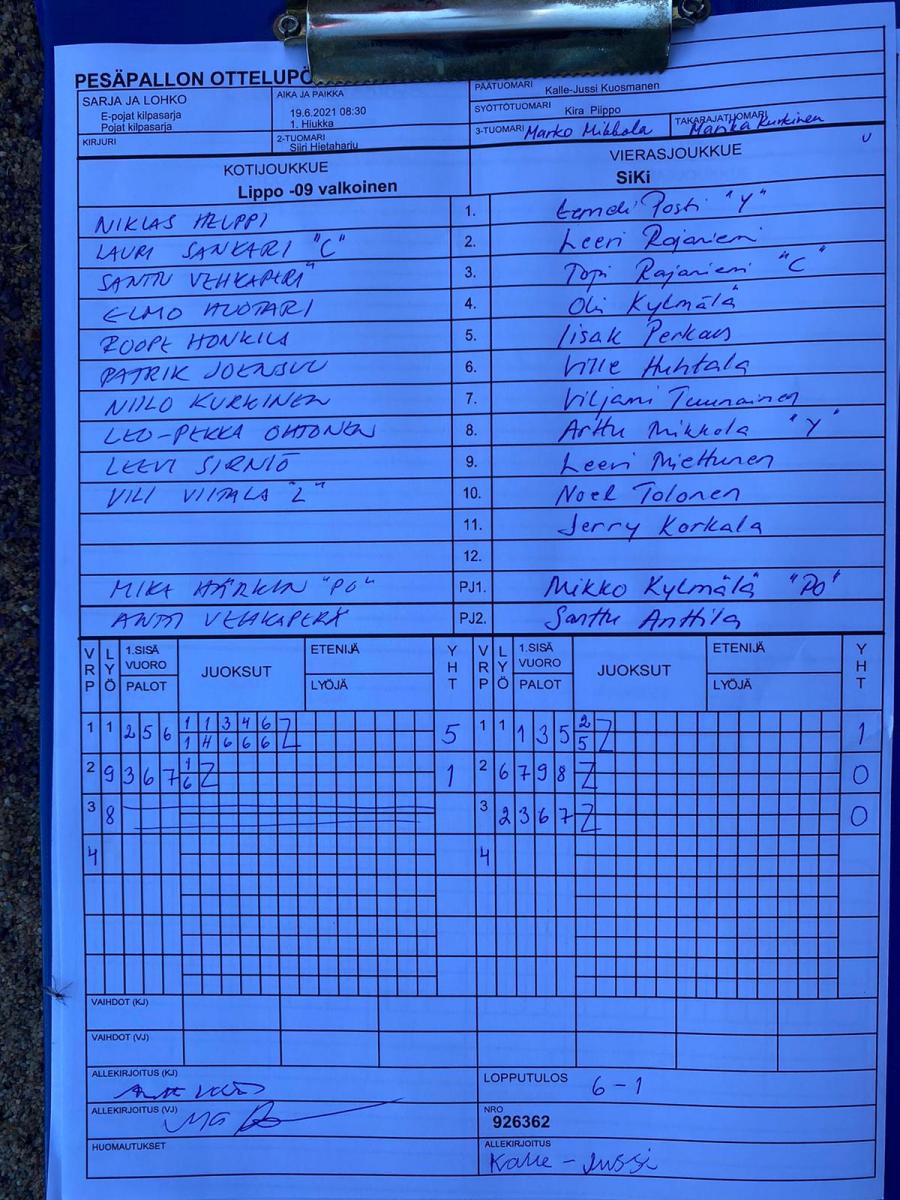 PESÄPALLON OTTELUPÖ
SARJA JA LOHKO
E-pojat kilpasarja
Pojat kilpasarja
AIKA JA PAIKKA
19.6.2021 08:30
1. Hiukka
PÄÄTUOMARI Kalle-Jussi Kuosmanen
SYÖTTÖTUOMARI Kira Piippo
KIRJURI
2-TUOMARI
Siiri Hietaharju
3-TUOMARI Marko Mikkola
TAKARAJATUOMARI Marika Kurkinen
KOTIJOUKKUE
Lippo -09 valkoinen
VIERASJOUKKUE
SiKi
NIKLAS HELPPI 1. Eemeli Posti "Y"
LAURI SANKARI "C" 2. Leevi Rajaniemi
SANTTU VEHKAPERÄ 3. Topi Rajaniemi "C"
ELMO HUOTARI 4. Oli Kylmälä
ROOPE HONKILA 5. Iisak Perkaus
PATRIK JOENSUU 6. Ville Huhtala
NIILO KURKINEN 7. Viljami Tuunainen
LEO-PEKKA OHTONEN 8. Arttu Mikkola "Y"
LEEVI SIRNIÖ 9. Leevi Miettunen
VILI VIITALA "L" 10. Noel Tolonen
11. Jerry Korkala
12.
MIKA HÄRKIN "PO" PJ1. Mikko Kylmälä "PO"
ANTTI VEHKAPERÄ PJ2. Santtu Anttila
VRP LYÖ 1.SISÄ VUORO PALOT JUOKSUT ETENIJÄ LYÖJÄ YHT VRP LYÖ 1.SISÄ VUORO PALOT JUOKSUT ETENIJÄ LYÖJÄ YHT
1 1 2 5 6 1 1 3 4 6 Z 5 1 1 1 3 5 2 Z 1
1 4 6 6 6 5
2 9 3 6 7 1 Z 1 2 6 7 9 8 Z 0
6
3 8 3 2 3 6 7 Z 0
4 4
VAIHDOT (KJ)
VAIHDOT (VJ)
ALLEKIRJOITUS (KJ)
LOPPUTULOS 6-1
ALLEKIRJOITUS (VJ)
NRO
926362
HUOMAUTUKSET
ALLEKIRJOITUS
Kalle-Jussi